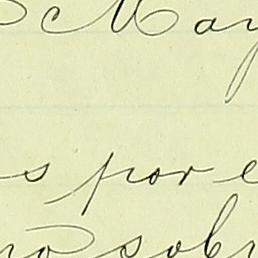 May
s por e
no sobr